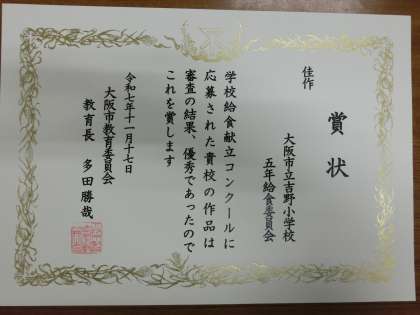 賞状
佳作
大阪市立吉野小学校
五年給食委員会
学校給食献立コンクールに
応募された貴校の作品は
審査の結果、優秀であったので
これを賞します
令和七年十一月十七日
大阪市教育委員会
教育長 多田勝哉